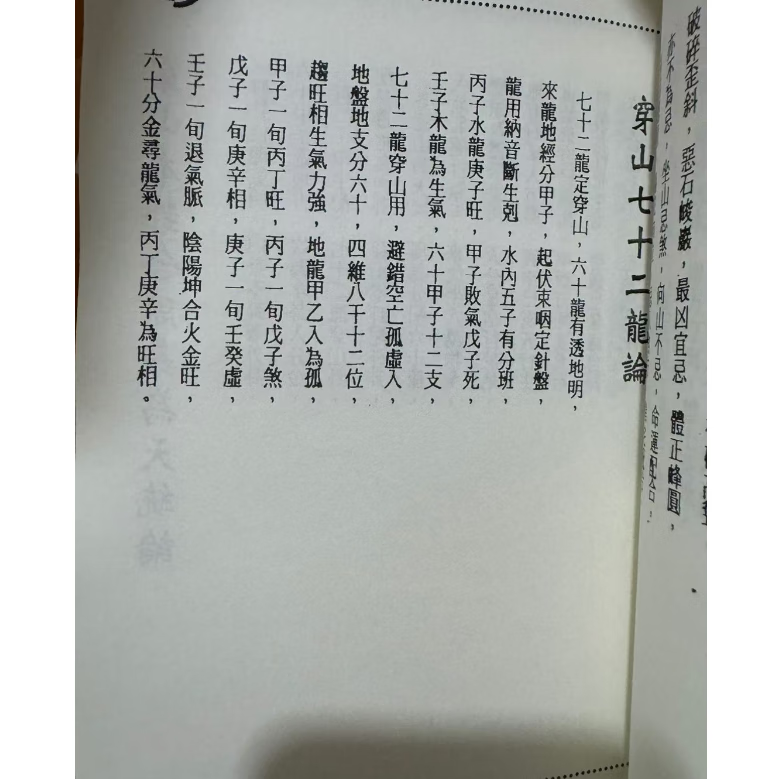 破碎歪斜，惡石峻巖，最凶宜忌，體正峰圓，
亦不為忌，坐山忌煞，向山不忌，命運配合，
穿山七十二龍論
七十二龍定穿山，六十龍有透地明，
來龍地經分甲子，起伏束咽定針盤，
龍用納音斷生剋，水內五子有分班，
丙子水龍庚子旺，甲子敗氣戊子死，
壬子木龍為生氣，六十甲子十二支，
七十二龍穿山用，避錯空亡孤虛入，
地盤地支分六十，四維八干十二位，
趨旺相生氣力強，地龍甲乙入為孤，
甲子一旬丙丁旺，丙子一旬戊子煞，
戊子一旬庚辛相，庚子一旬壬癸虛，
壬子一旬退氣脈，陰陽坤合火金旺，
六十分金尋龍氣，丙丁庚辛為旺相。